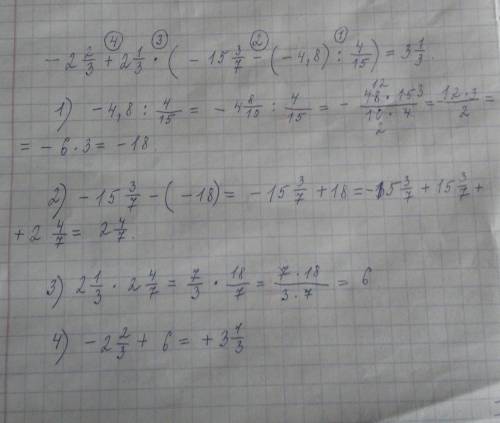 ④ ③ ② ①
- 2 2/3 + 2 1/3 · ( - 15 3/7 - (-4,8) : 4/15 ) = 3 1/3
1) -4,8 : 4/15 = - 4 8/10 : 4/15 = - 48 12 · 15 3 / 10 2 · 4 = 12·3/2 =
= - 6 · 3 = -18.
2) - 15 3/7 - ( - 18) = - 15 3/7 + 18 = -15 3/7 + 15 3/7 +
+ 2 4/7 = 2 4/7.
3) 2 1/3 · 2 4/7 = 7/3 · 18/7 = 7·18/3·7 = 6
4) - 2 2/3 + 6 = + 3 1/3